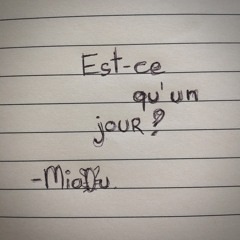 Est-ce
qu'un
jour?